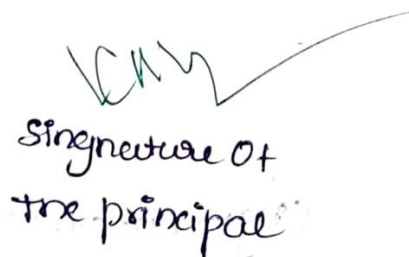 Singneture Of
the principal